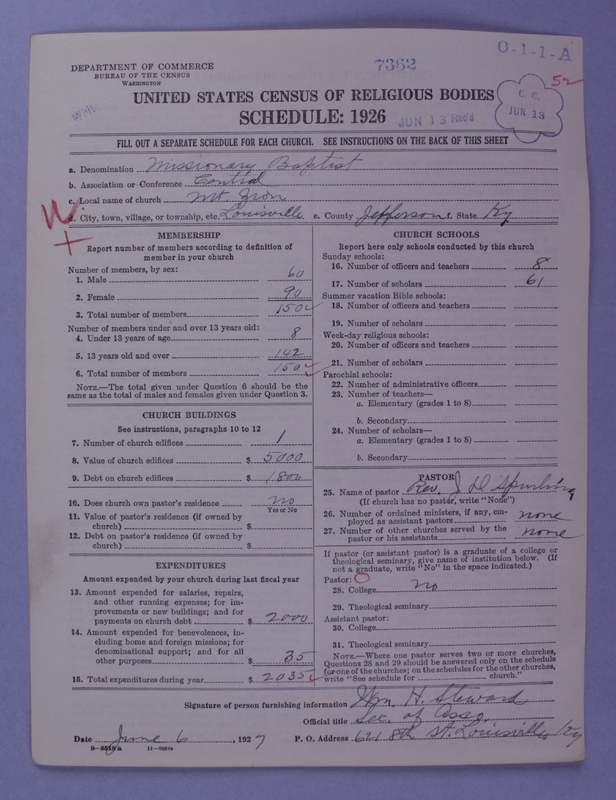 DEPARTMENT OF COMMERCE
BUREAU OF THE CENSUS
WASHINGTON
7362
O-1-1-A
52
C. C.
JUN 13
UNITED STATES CENSUS OF RELIGIOUS BODIES
SCHEDULE: 1926
JUN 13 Rec'd
FILL OUT A SEPARATE SCHEDULE FOR EACH CHURCH. SEE INSTRUCTIONS ON THE BACK OF THIS SHEET
a. Denomination Missionary Baptist
b. Association or Conference Central
c. Local name of church Mt Zion
d. City, town, village, or township, etc. Louisville e. County Jefferson f. State Ky
MEMBERSHIP
Report number of members according to definition of
member in your church
Number of members, by sex:
1. Male 60
2. Female 90
3. Total number of members 150
Number of members under and over 13 years old:
4. Under 13 years of age 8
5. 13 years old and over 142
6. Total number of members 150
NOTE.—The total given under Question 6 should be the
same as the total of males and females given under Question 3.
CHURCH BUILDINGS
See instructions, paragraphs 10 to 12
7. Number of church edifices 1
8. Value of church edifices $ 5000
9. Debt on church edifices $ 1800
10. Does church own pastor's residence no
Yes or No
11. Value of pastor's residence (if owned by
church) $
12. Debt on pastor's residence (if owned by
church) $
EXPENDITURES
Amount expended by your church during last fiscal year
13. Amount expended for salaries, repairs,
and other running expenses; for im-
provements or new buildings; and for
payments on church debt $ 2000
14. Amount expended for benevolences, in-
cluding home and foreign missions; for
denominational support; and for all
other purposes $ 35
15. Total expenditures during year $ 2035
CHURCH SCHOOLS
Report here only schools conducted by this church
Sunday schools:
16. Number of officers and teachers 8
17. Number of scholars 61
Summer vacation Bible schools:
18. Number of officers and teachers
19. Number of scholars
Week-day religious schools:
20. Number of officers and teachers
21. Number of scholars
Parochial schools:
22. Number of administrative officers
23. Number of teachers—
a. Elementary (grades 1 to 8)
b. Secondary
24. Number of scholars—
a. Elementary (grades 1 to 8)
b. Secondary
PASTOR
25. Name of pastor Rev. J D Spurling
(If church has no pastor, write "None")
26. Number of ordained ministers, if any, em-
ployed as assistant pastors none
27. Number of other churches served by the
pastor or his assistants none
If pastor (or assistant pastor) is a graduate of a college or
theological seminary, give name of institution below. (If
not a graduate, write "No" in the space indicated.)
Pastor:
28. College no
29. Theological seminary
Assistant pastor:
30. College
31. Theological seminary
NOTE.—Where one pastor serves two or more churches,
Questions 28 and 29 should be answered only on the schedule
for one of the churches; on the schedules for the other churches,
write "See schedule for church."
Signature of person furnishing information Wm. H. Steward
Official title Sec. of Asso.
Date June 6, 1927 P. O. Address 621 8th St. Louisville Ky